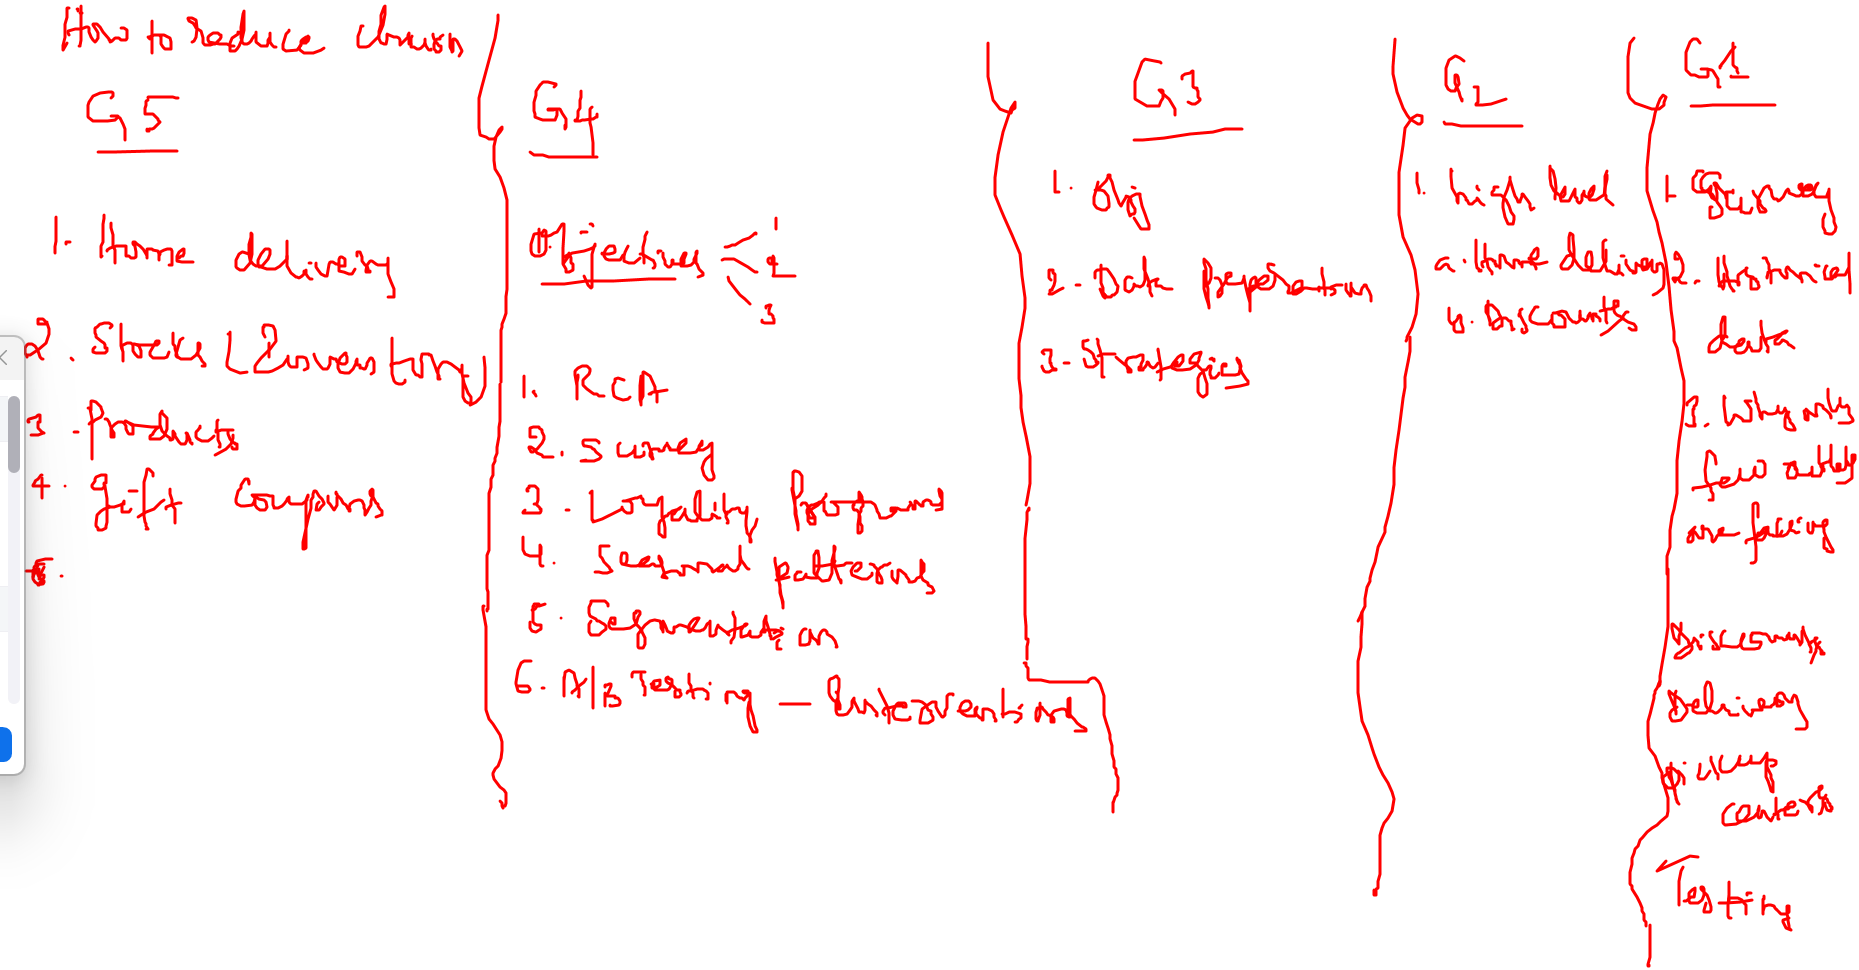 How to reduce churn
G5
1. Home delivery
2. Stocks (Inventory)
3. Products
4. gift coupons
5.
G4
Objectives 1
2
3
1. RCA
2. Survey
3. Loyality Programs
4. Seasonal patterns
5. Segmentation
6. A/B Testing — Interventions
G3
1. Obj
2. Data Preperation
3. Strategies
G2
1. high level
a. Home delivery
b. Discounts
G1
1. Survey
2. Historical
data
3. Why only
few outlets
are facing
Discounts
Delivery
pickup
centers
Testing